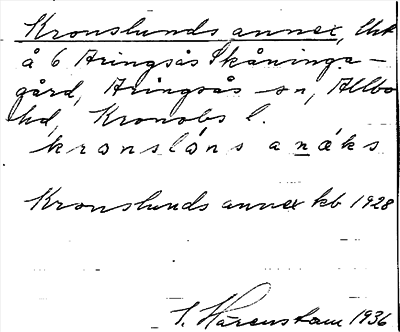 Kronslunds annex, lht
å 6 Aringsås Skåninga-
gård, Aringsås sn, Allbo
hd, Kronobs l.
kronslóns anǽks
Kronslunds annex kb 1928
S. Härenstam 1936